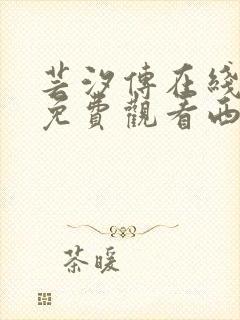 芸汐傳在綫
免費觀看西
茶暖